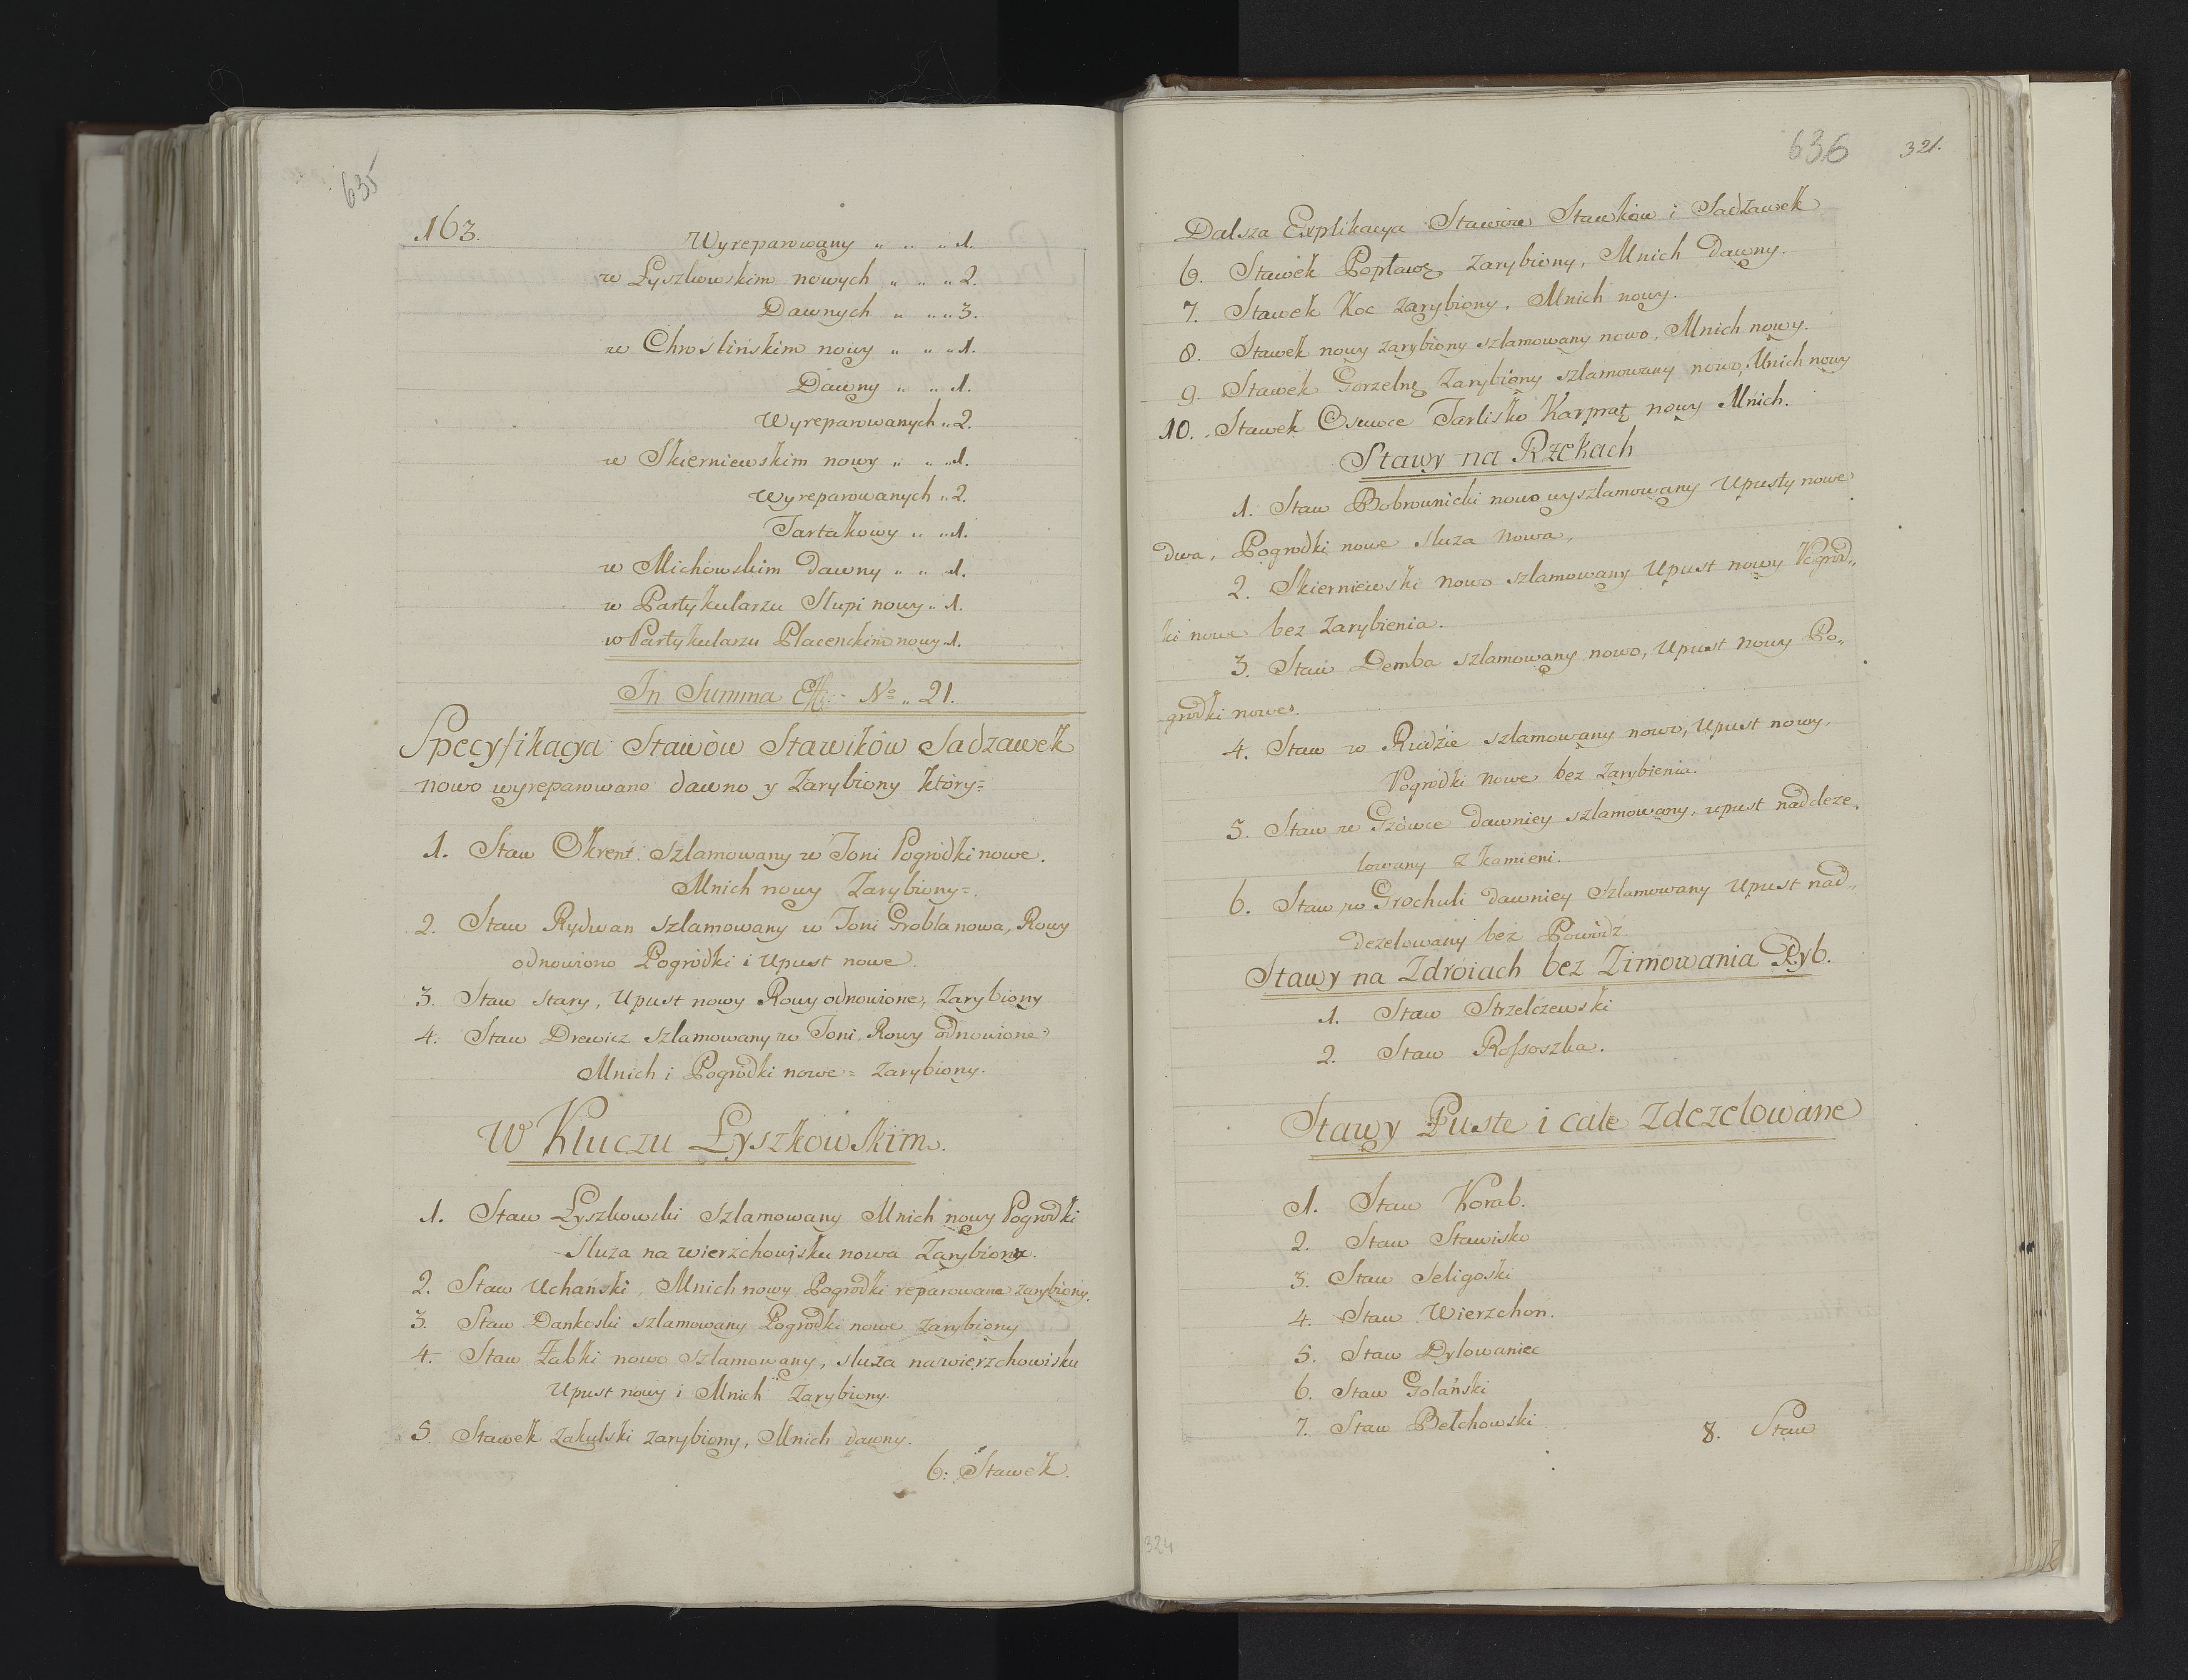 635
163.
Wyreparowany „ „ „ 1.
w Łyszkowskim nowych „ „ „ 2.
Dawnych „ „ „ 3.
w Chroślińskim nowy „ „ „ 1.
Dawny „ „ 1.
Wyreparowanych „ 2.
w Skierniewskim nowy „ „ „ 1.
Wyreparowanych „ 2.
Tartakowy „ „ 1.
w Michowskim dawny „ „ 1.
w Partykularzu Słupi nowy „ 1.
w Partykularzu Placenckim nowy 1.
In Summa N= „ 21.
Specyfikacya Stawów Stawików Sadzawek
nowo wyreparowano dawno y Zarybiony który=
1. Staw Okrent szlamowany w Toni Pogródki nowe.
Mnich nowy Zarybiony=.
2. Staw Rydwan szlamowany w Toni Grobla nowa, Rowy
odnowiono Pogródki i Upust nowe.
3. Staw stary, Upust nowy Rowy odnowione, Zarybiony
4. Staw Drewicz szlamowany w Toni, Rowy odnowione
Mnich i Pogródki nowe = Zarybiony.
W Kluczu Łyszkowskim.
1. Staw Łyszkowski Szlamowany Mnich nowy Pogrodki
Sluza na wierzchowisku nowa Zarybiony.
2. Staw Uchański, Mnich nowy Pogrodki reparowane zarybiony.
3. Staw Dankoski szlamowany Pogrodki nowe zarybiony
4. Staw Żabki nowo Szlamowany, sluza na wierzchowisku
Upust nowy i Mnich Zarybiony.
5. Stawek Zakulski zarybiony, Mnich dawny.
6. Stawek
636 321.
Dalsza Explikacya Stawów Stawków i Sadzawek
6. Stawek Popławę zarybiony, Mnich Dawny.
7. Stawek Koc zarybiony, Mnich nowy.
8. Stawek nowy zarybiony szlamowany nowo, Mnich nowy.
9. Stawek Gorzelnę Zarybiony szlamowany nowo, Mnich nowy
10. Stawek Osuwce Tarlisko Karprąt nowy Mnich.
Stawy na Rzekach
1. Staw Bobrownicki nowo wyszlamowany Upusty nowe
dwa, Pogrodki nowe sluza nowa,
2. Skierniewski nowo szlamowany Upust nowy Pogrod„
ki nowe bez Zarybienia.
3. Staw Demba szlamowany nowo, Upust nowy Po„
gródki nowe.
4. Staw w Rudzie szlamowany nowo, Upust nowy,
Pogródki nowe bez Zarybienia.
5. Staw w Gzówce dawniey szlamowany, upust naddeze„
lowany z kamieni.
6. Staw w Grochuli dawniey Szlamowany Upust nad„
dezelowany bez Powódź
Stawy na Zdróiach bez Zimowania Ryb.
1. Staw Strzelczewski
2. Staw Roſsoszka.
Stawy Puste i całe Zdezelowane
1. Staw Korab.
2. Staw Stawisko
3. Staw Seligoski
4. Staw Wierzchoń.
5. Staw Dylowaniec
6. Staw Golański
7. Staw Bełchowski
8. Staw
324